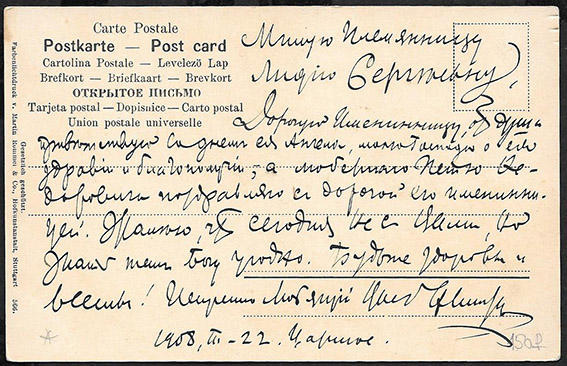 Carte Postale
Postkarte — Post card
Cartolina Postale — Levelező Lap
Brefkort — Briefkaart — Brevkort
ОТКРЫТОЕ ПИСЬМО
Tarjeta postal — Dopisnice — Carto postal
Union postale universelle
Farbenlichtdruck v. Martin Rommel & Co., Hofkunstanstalt, Stuttgart 566.
Gesetzlich geschützt.
Милую Имянинницу
Лидію Сергѣевну,
Дорогую Имянинницу, отъ души
привѣтствую со днемъ ея Ангела, о ея
здравіи и благоденствіи; а
поздравляю съ дорогой его имянинни-
цей. Жалѣю, что сегодня не съ Вами, но
знать такъ Богу угодно. Будьте здоровы и
веселы! Искренно любящій Васъ
1908, III - 22. Царицын.
150р